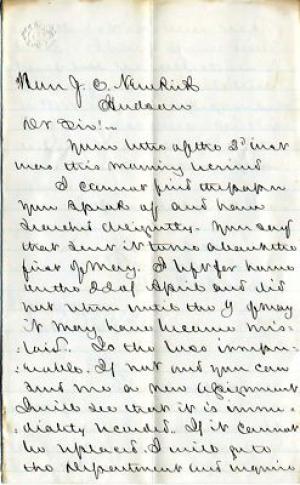 Hon J. O. Newkirk
Hudson
Dr Sir:-
Your letter of the 2d inst
was this morning received
I cannot find the paper
you speak of and have
searched diligently. You say
that sent it to me about the
first of May. I left for home
on the 22d of April and did
not return until the 9 of May
it may have become mis-
:laid. Is the loss irrepa-
:rable. If not and you can
send me a new assignment
I will see that it is imme-
:diately recorded. If it cannot
be replaced. I will go to
the Department and inquire